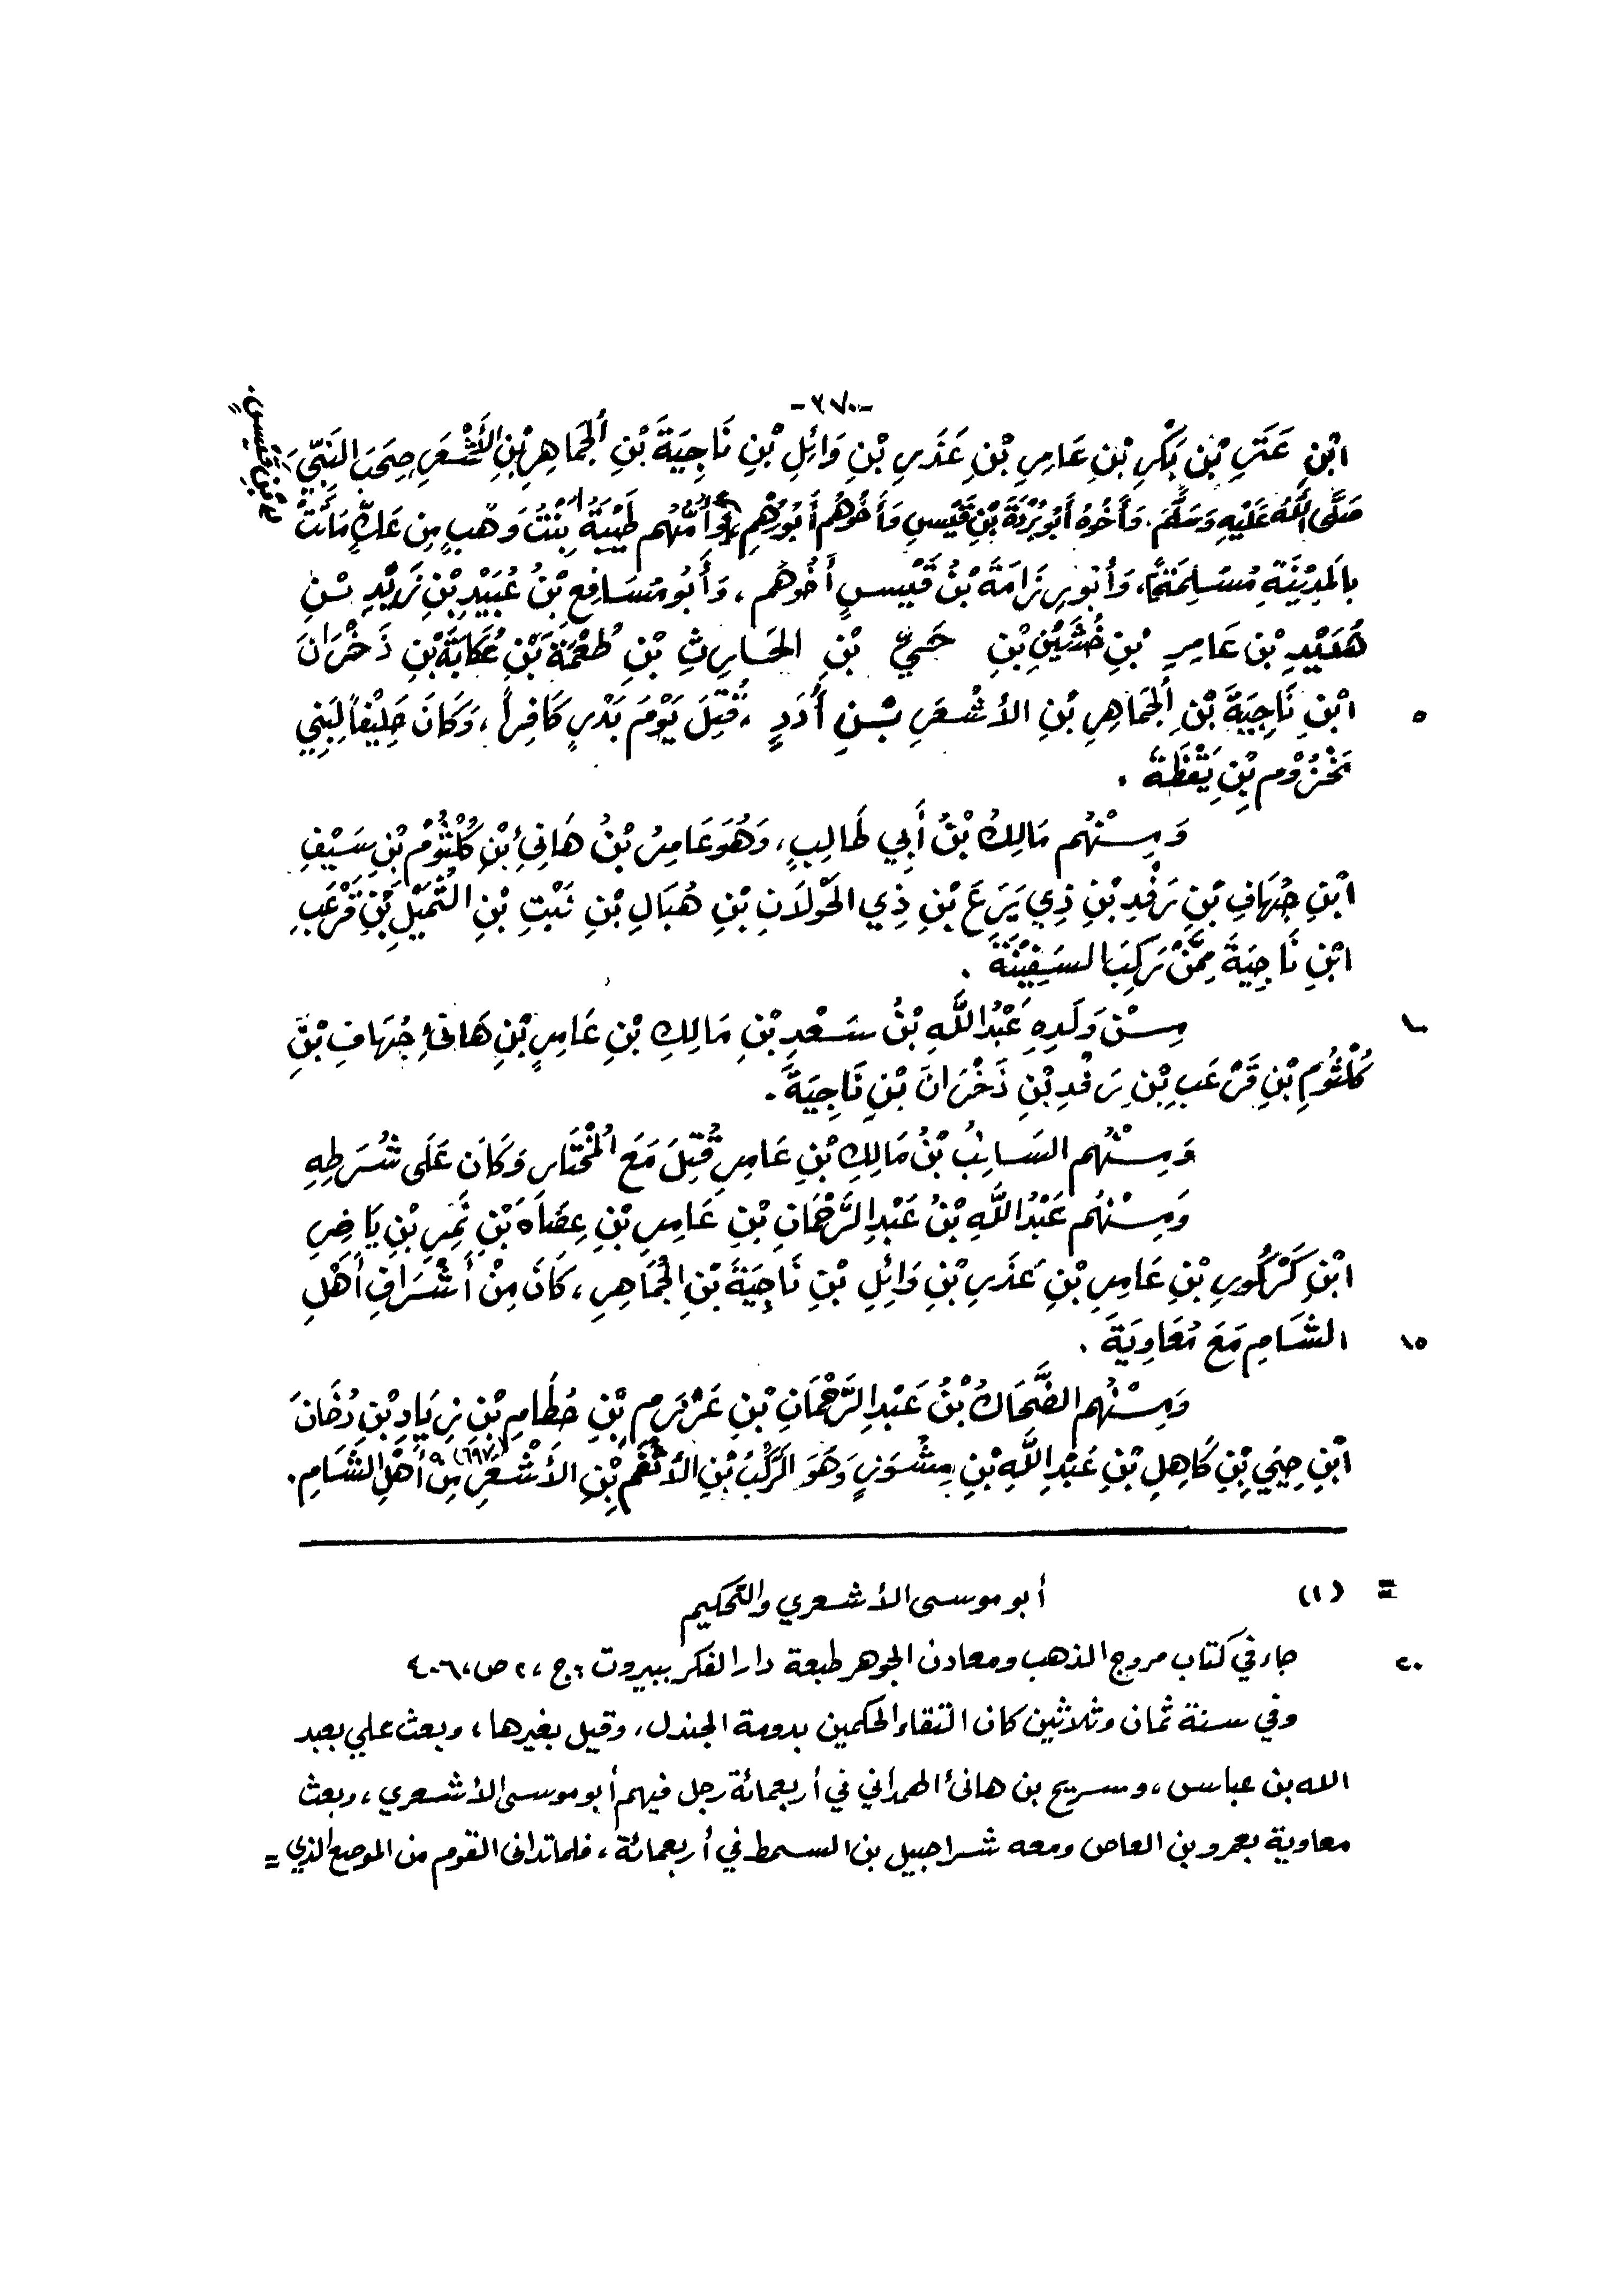 -٣٧٠-
ابْنِ عَتَرِ بْنِ بَكْرِ بْنِ عَامِرِ بْنِ عَذَرِ بْنِ وَائِلِ بْنِ نَاجِيَةَ بْنِ الجُمَاهِرِ بْنِ الأَشْعَرِ صَحِبَ النَّبِيَّ
صَلَّى اللَّهُ عَلَيْهِ وَسَلَّمَ. وَأَخُوهُ أَبُو بُرْدَةَ بْنُ قَيْسٍ وَأَخُوهُم أَبُو رُهْمِ بْنُ قَيْسٍ. وَأُمُّهُم طَيْبَةُ بِنْتُ وَهْبٍ مِن عَكٍّ مَاتَتْ
بِالمَدِيْنَةِ مُسْلِمَةً، وَأَبُو رِزَامَةَ بْنُ قَيْسٍ أَخُوهُم، وَأَبُو مُسَافِعِ بْنُ عُبَيْدِ بْنِ زَيْدِ بْنِ
هُدَيْدِ بْنِ عَامِرِ بْنِ خُشَيْنِ بْنِ حَيِّ بْنِ الحَارِثِ بْنِ طُعْمَةَ بْنِ عُكَابَةَ بْنِ ذَخْرَانَ
٥ ابْنِ نَاجِيَةَ بْنِ الجُمَاهِرِ بْنِ الأَشْعَرِ بْنِ أُدَدٍ، قُتِلَ يَوْمَ بَدْرٍ كَافِراً، وَكَانَ حَلِيْفاً لِبَنِي
مَخْزُوْمِ بْنِ يَقَظَةَ.
وَمِنْهُم مَالِكُ بْنُ أَبِي طَالِبٍ، وَهُوَ عَامِرُ بْنُ هَانِئِ بْنِ كُلْثُوْمِ بْنِ سَيْفِ
ابْنِ جُهَافِ بْنِ رَفْدِ بْنِ ذِي يَرَعَ بْنِ ذِي الحَوْلَانِ بْنِ هُبَالِ بْنِ نَبْتِ بْنِ الثُّمَيْلِ بْنِ قَرْعَبِ
ابْنِ نَاجِيَةَ مِمَّنْ رَكِبَ السَفِيْنَةَ.
١٠ مِنْ وَلَدِهِ عَبْدُ اللَّهِ بْنُ سَعْدِ بْنِ مَالِكِ بْنِ عَامِرِ بْنِ هَانئِ جُهَافِ بْنِ
كُلْثُومِ بْنِ قَرْعَبِ بْنِ رَفْدِ بْنِ ذَخْرَانَ بْنِ نَاجِيَةَ.
وَمِنْهُم السَائِبُ بْنُ مَالِكِ بْنِ عَامِرِ قُتِلَ مَعَ المُخْتَارِ وَكَانَ عَلَى شُرَطِهِ
وَمِنْهُم عَبْدُ اللَّهِ بْنُ عَبْدِ الرَّحْمَانِ بْنِ عَامِرِ بْنِ عِضَاهَ بْنِ نَمِرِ بْنِ يَاضِرِ
ابْنِ كَرْكُورِ بْنِ عَامِرِ بْنِ عَذَرِ بْنِ وَائِلِ بْنِ نَاجِيَةَ بْنِ الجُمَاهِرِ، كَانَ مِنْ أَشْرَافِ أَهْلِ
١٥ الشَامِ مَعَ مُعَاوِيَةَ.
وَمِنْهُم الضَّحَاكُ بْنُ عَبْدِ الرَّحْمَانِ بْنِ عَرْزَمِ بْنِ حُطَامِ بْنِ زِيَادِ بْنِ دُخَانَ
ابْنِ حِيَيِّ بْنِ كَاهِلِ بْنِ عَبْدِ اللَّهِ بْنِ وَهُوَ الرَّكْبُ بْنِ الأَنْعَمِ بْنِ الأَشْعَرِ (٦٩٧) مِنْ أَهْلِ الشَامِ.
= (١) أبو موسى الأشعري والتحكيم
٢٠ جاء في كتاب مروج الذهب ومعادن الجوهر طبعة دار الفكر ببيروت: ج، ٢، ص، ٤٠٦
وفي سنة ثمان وثلاثين كان التقاء الحكمين بدومة الجندل، وقيل بغيرها، وبعث علي بعبد
الله بن عباس، وسريح بن هانئ الهمداني في أربعمائة رجل فيهم أبو موسى الأشعري، وبعث
معاوية بعمرو بن العاص ومعه شراحبيل بن السمط في أربعمائة، فلما تدانى القوم من الموضع الذي =